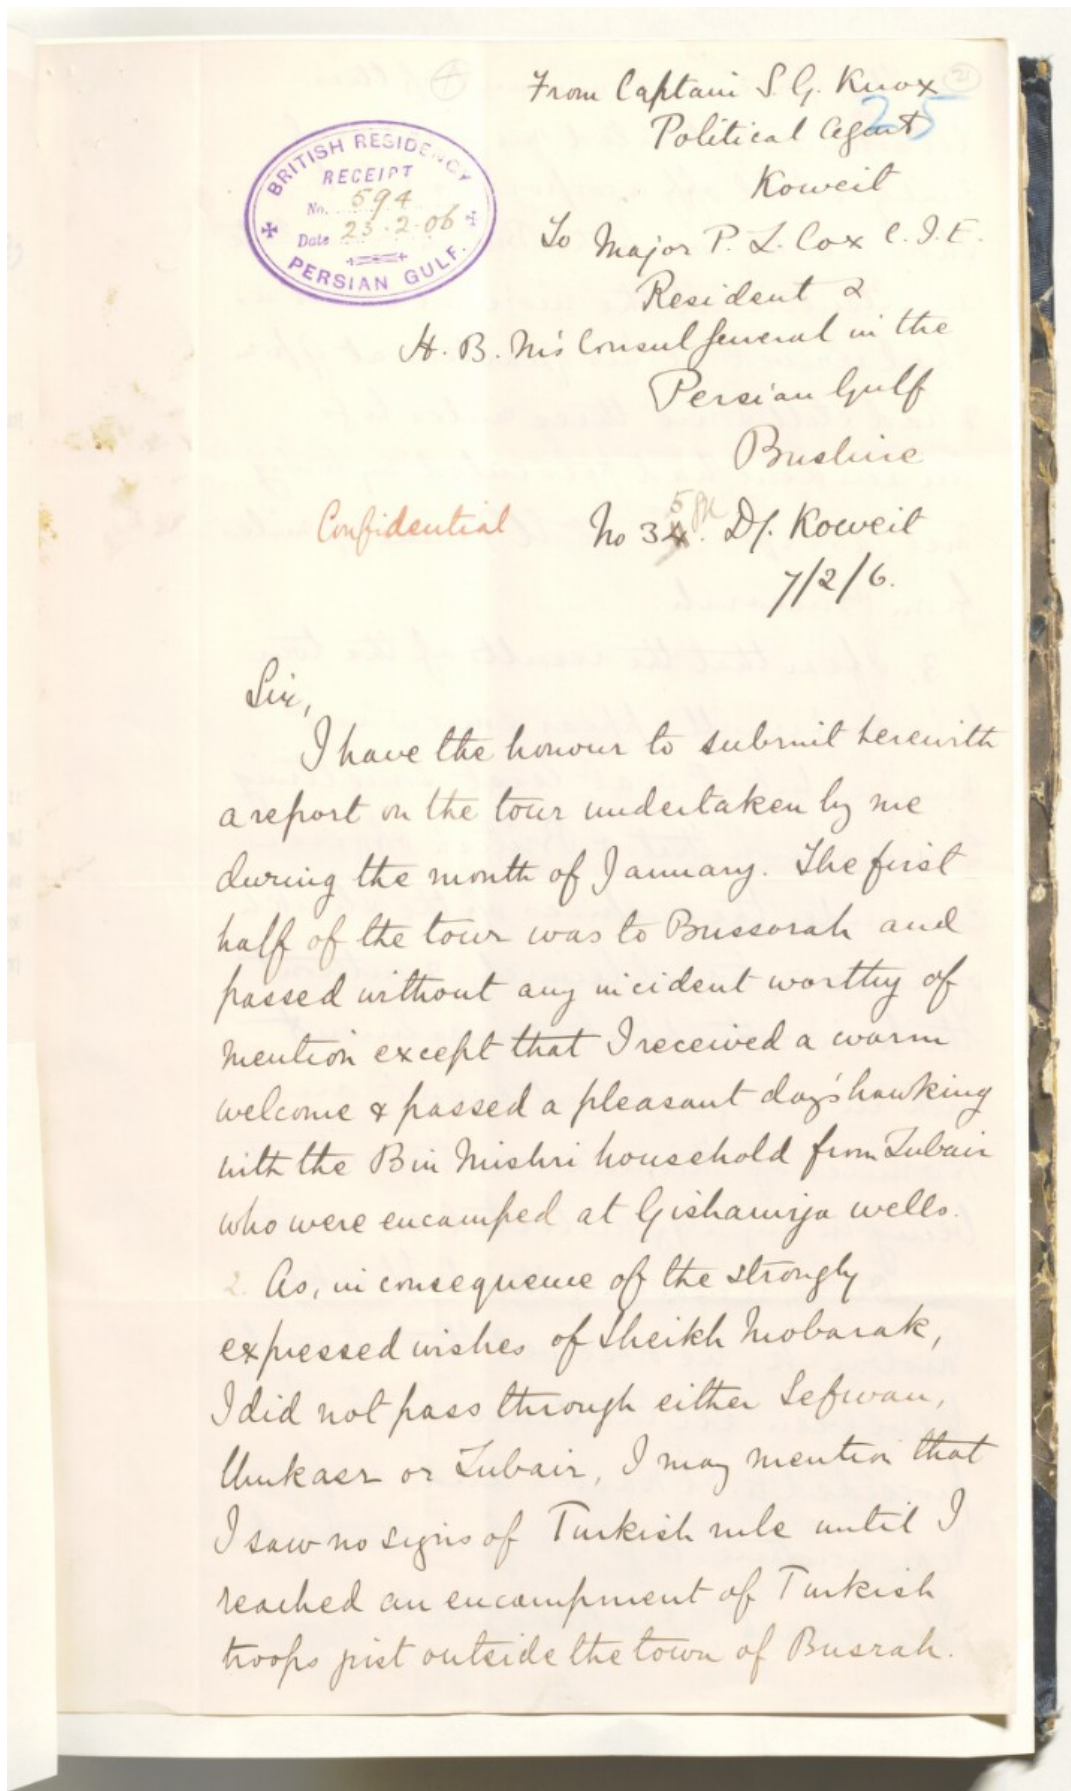 From Captain S. G. Knox
21
25
Political Agent
Koweit
To Major P. Z. Cox C.I.E.
Resident &
H. B. M's Consul General in the
Persian Gulf
Bushire
BRITISH RESIDENCY
RECEIPT
No. 594
Date 23.2.06
PERSIAN GULF.
Confidential
No 35. D/. Koweit
7/2/6.
Sir,
I have the honour to submit herewith
a report on the tour undertaken by me
during the month of January. The first
half of the tour was to Bussorah and
passed without any incident worthy of
mention except that I received a warm
welcome & passed a pleasant day's hawking
with the Bin Mishri household from Zubair
who were encamped at wells.
2. As, in consequence of the strongly
expressed wishes of Sheikh Mobarak,
I did not pass through either Sefwan,
Umkasr or Zubair, I may mention that
I saw no signs of Turkish rule until I
reached an encampment of Turkish
troops just outside the town of Busrah.